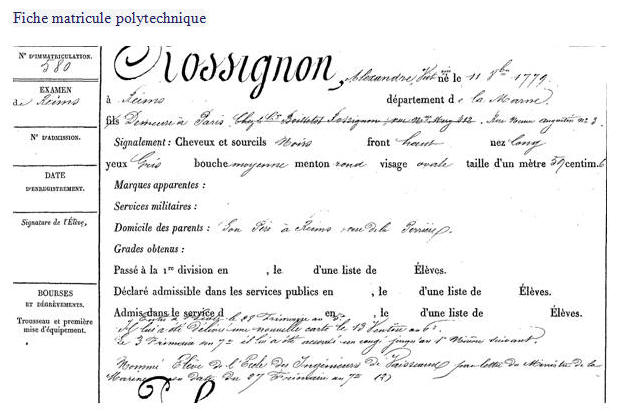 Fiche matricule polytechnique
N° D'IMMATRICULATION.
580
EXAMEN
de Reims
N° D'ADMISSION.
DATE
D'ENREGISTREMENT.
Signature de l'Élève,
BOURSES
ET DÉGRÈVEMENTS.
Trousseau et première
mise d'équipement.
Rossignon, Alexandre né le 11 1779
à Reims département de la Marne
fils Demeure à Paris Rossignon n° 3
Signalement: Cheveux et sourcils Noirs front haut nez long
yeux Gris bouche moyenne menton rond visage ovale taille d'un mètre 59 centim.
Marques apparentes :
Services militaires :
Domicile des parents : Son Père à Reims rue de la
Grades obtenus :
Passé à la 1re division en , le d'une liste de Élèves.
Déclaré admissible dans les services publics en , le d'une liste de Élèves.
Admis dans le service d en , le d'une liste de Élèves.
le Frimaire an
Il lui a été délivré une nouvelle carte le 13 Ventôse an 6
le 3 Frimaire an 7 il lui a été accordé un congé jusqu'au 1er Nivôse suivant.
Nommé Elève de l'Ecole des Ingénieurs de Vaisseaux par lettre du Ministre de la
Marine en date du 27 Frimaire an 7